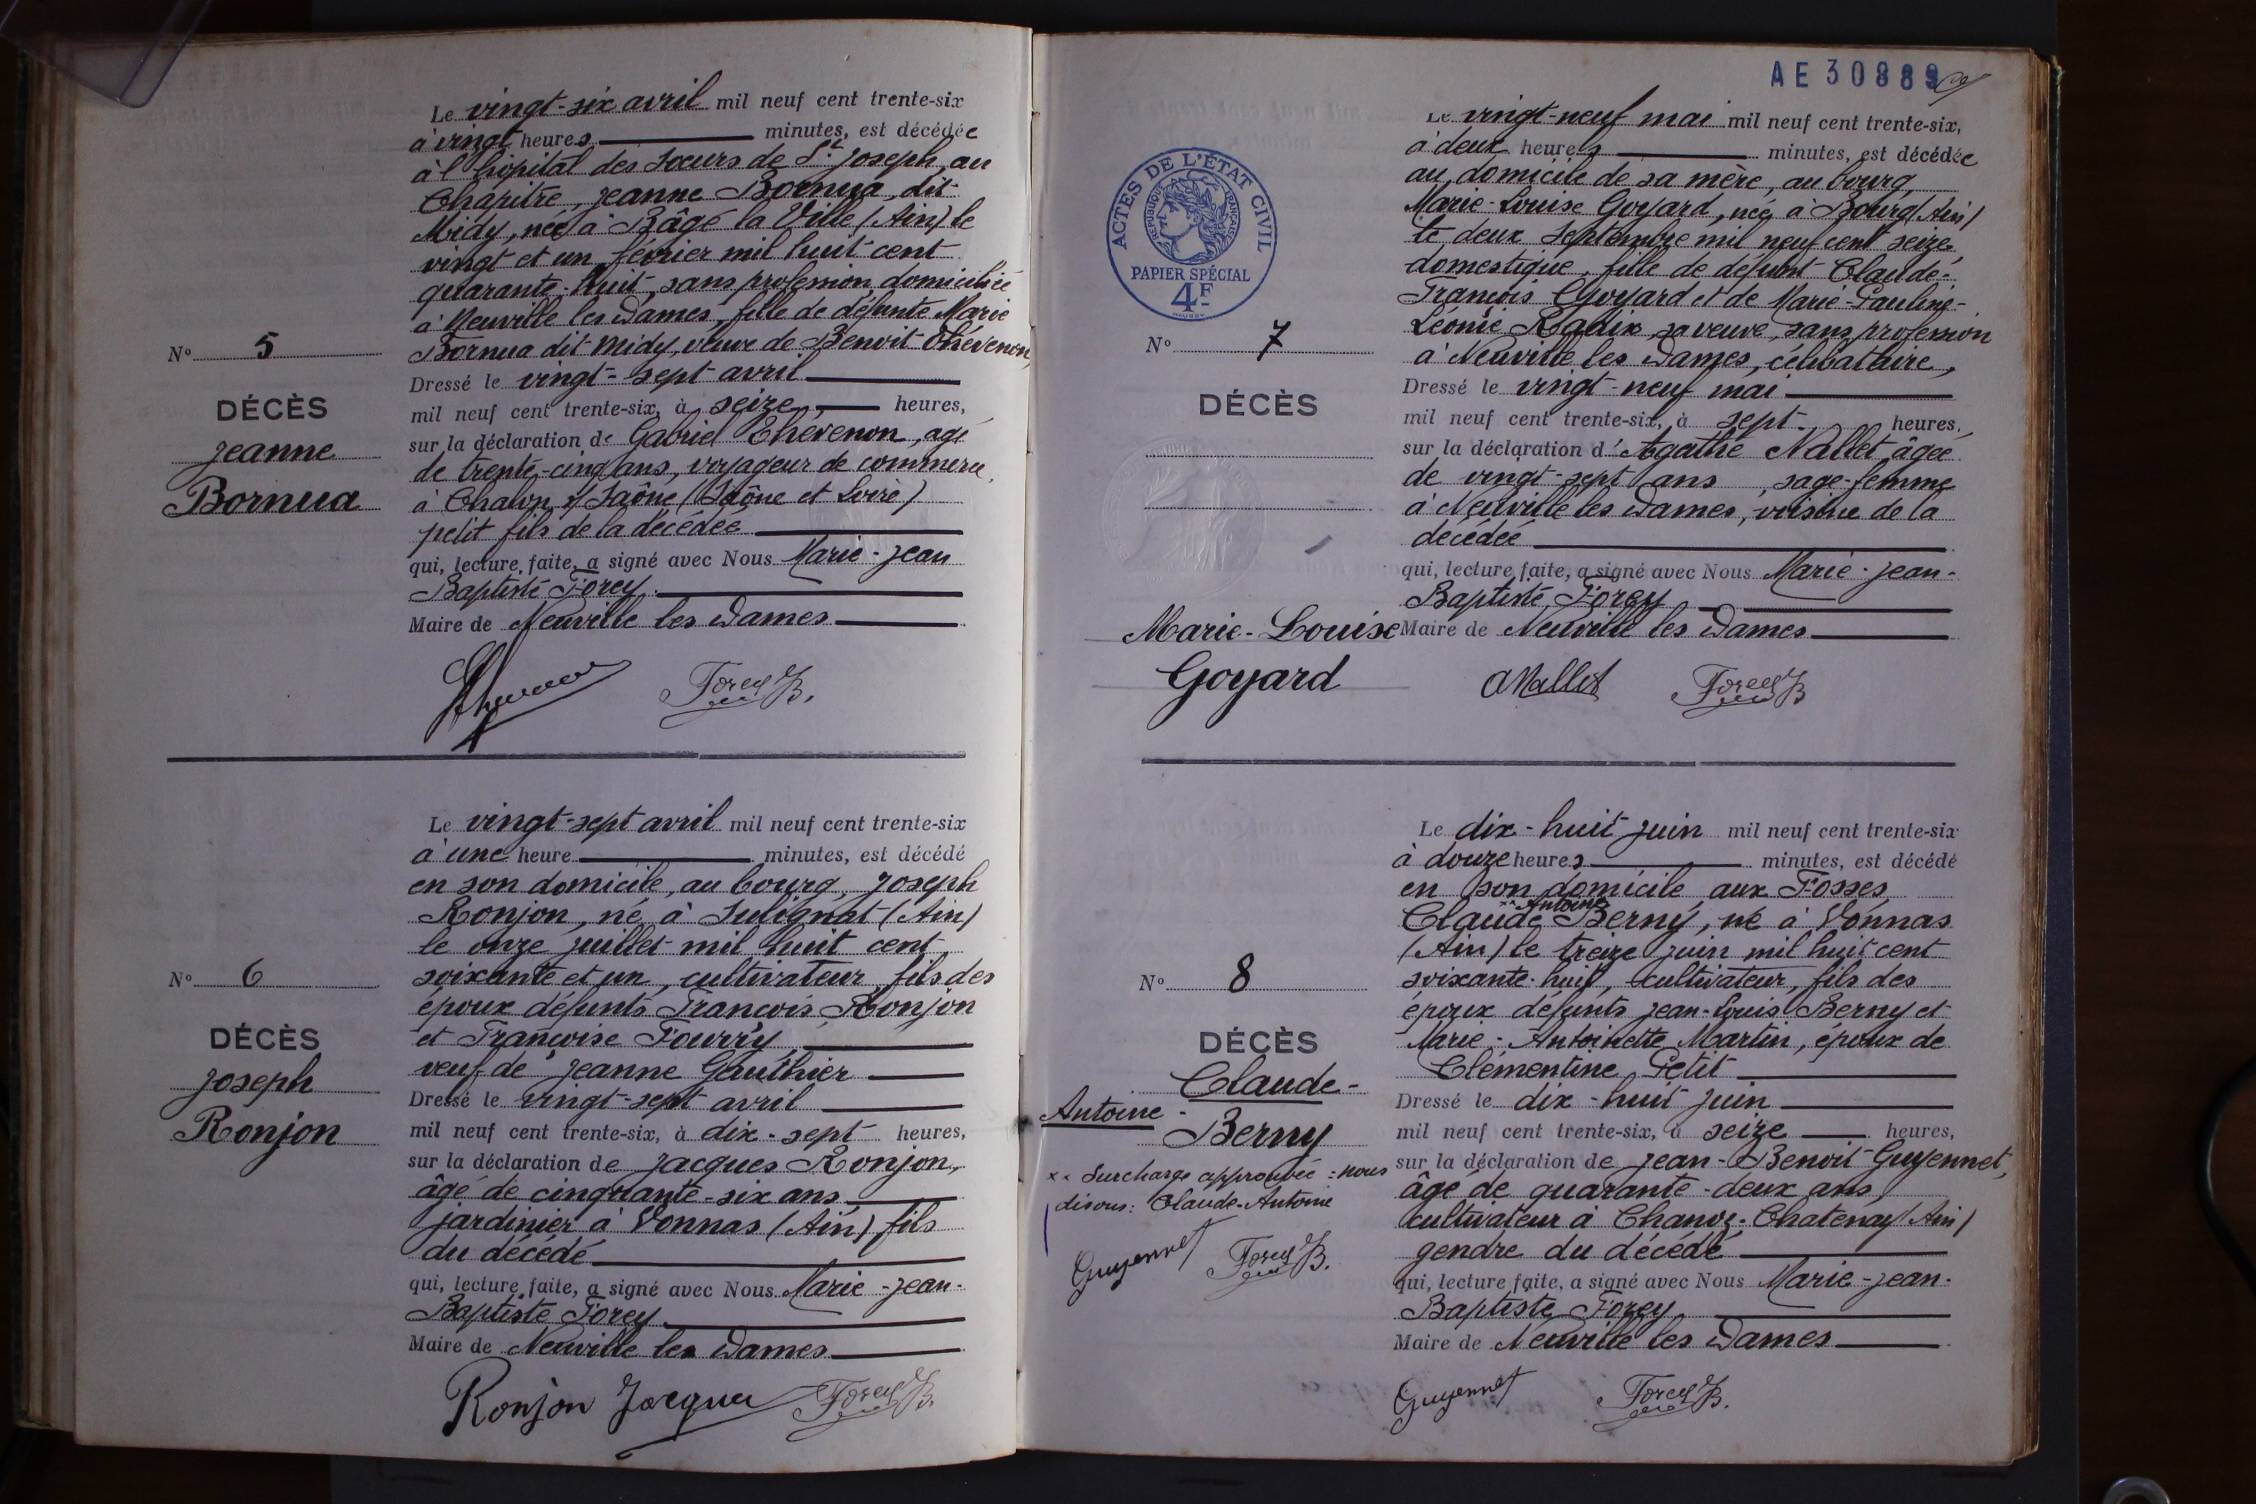 Le vingt-six avril mil neuf cent trente-six
à vingt heures minutes, est décédée
à l'hôpital des Sœurs de St Joseph, au
Chapitre, Jeanne Bornua, dit
Midy, née à Bâgé la Ville (Ain) le
vingt et un février mil huit cent
quarante-huit, sans profession, domiciliée
à Neuville les Dames, fille de défunte Marie
Bornua dit Midy, veuve de Benoit Thévenon,
Dressé le vingt-sept avril
mil neuf cent trente-six, à seize heures,
sur la déclaration de Gabriel Thévenon, agé
de trente-cinq ans, voyageur de commerce,
à Chalon s/ Saône (Saône et Loire)
petit fils de la décédée
qui, lecture faite, a signé avec Nous Marie-Jean
Baptiste Forey
Maire de Neuville les Dames
Forey B.
No 5
DÉCÈS
Jeanne
Bornua
Le vingt-sept avril mil neuf cent trente-six
à une heure minutes, est décédé
en son domicile, au bourg, Joseph
Ronjon, né à Sulignat (Ain)
le onze juillet mil huit cent
soixante et un, cultivateur, fils des
époux défunts François Ronjon
et Françoise Fourry,
veuf de Jeanne Gauthier
Dressé le vingt-sept avril
mil neuf cent trente-six, à dix-sept heures,
sur la déclaration de Jacques Ronjon,
âgé de cinquante-six ans
jardinier à Vonnas (Ain) fils
du décédé
qui, lecture faite, a signé avec Nous Marie-Jean-
Baptiste Forey
Maire de Neuville les Dames
Ronjon Jacques Forey B.
No 6
DÉCÈS
Joseph
Ronjon
AE 30889
ACTES DE L'ÉTAT CIVIL
RÉPUBLIQUE FRANÇAISE
PAPIER SPÉCIAL
4F
Le vingt-neuf mai mil neuf cent trente-six,
à deux heures minutes, est décédée
au domicile de sa mère, au bourg,
Marie-Louise Goyard, née à Bourg (Ain)
le deux Septembre mil neuf cent seize,
domestique, fille de défunt Claude-
François Goyard et de Marie-Pauline-
Léonie Radix, sa veuve, sans profession
à Neuville les Dames, célibataire,
Dressé le vingt-neuf mai
mil neuf cent trente-six, à sept heures,
sur la déclaration d'Agathe Nallet, âgée
de vingt-sept ans, sage-femme
à Neuville les Dames, voisine de la
décédée
qui, lecture faite, a signé avec Nous Marie-Jean-
Baptiste Forey
Maire de Neuville les Dames
A Nallet Forey B
No 7
DÉCÈS
Marie-Louise
Goyard
Le dix-huit juin mil neuf cent trente-six
à douze heures minutes, est décédé
en son domicile aux Fosses
×× Antoine
Claude Berny, né à Vonnas
(Ain) le treize juin mil huit cent
soixante-huit, cultivateur, fils des
époux défunts Jean-Louis Berny et
Marie-Antoinette Martin, époux de
Clémentine Petit
Dressé le dix-huit juin
mil neuf cent trente-six, à seize heures,
sur la déclaration de Jean-Benoit Guyennet,
âgé de quarante-deux ans,
cultivateur à Chanoz-Chatenay (Ain)
gendre du décédé
qui, lecture faite, a signé avec Nous Marie-Jean-
Baptiste Forey
Maire de Neuville les Dames
Guyennet Forey B.
No 8
DÉCÈS
Claude-
Antoine-
Berny
×× Surcharge approuvée : nous
disons : Claude-Antoine
Guyennet Forey B.